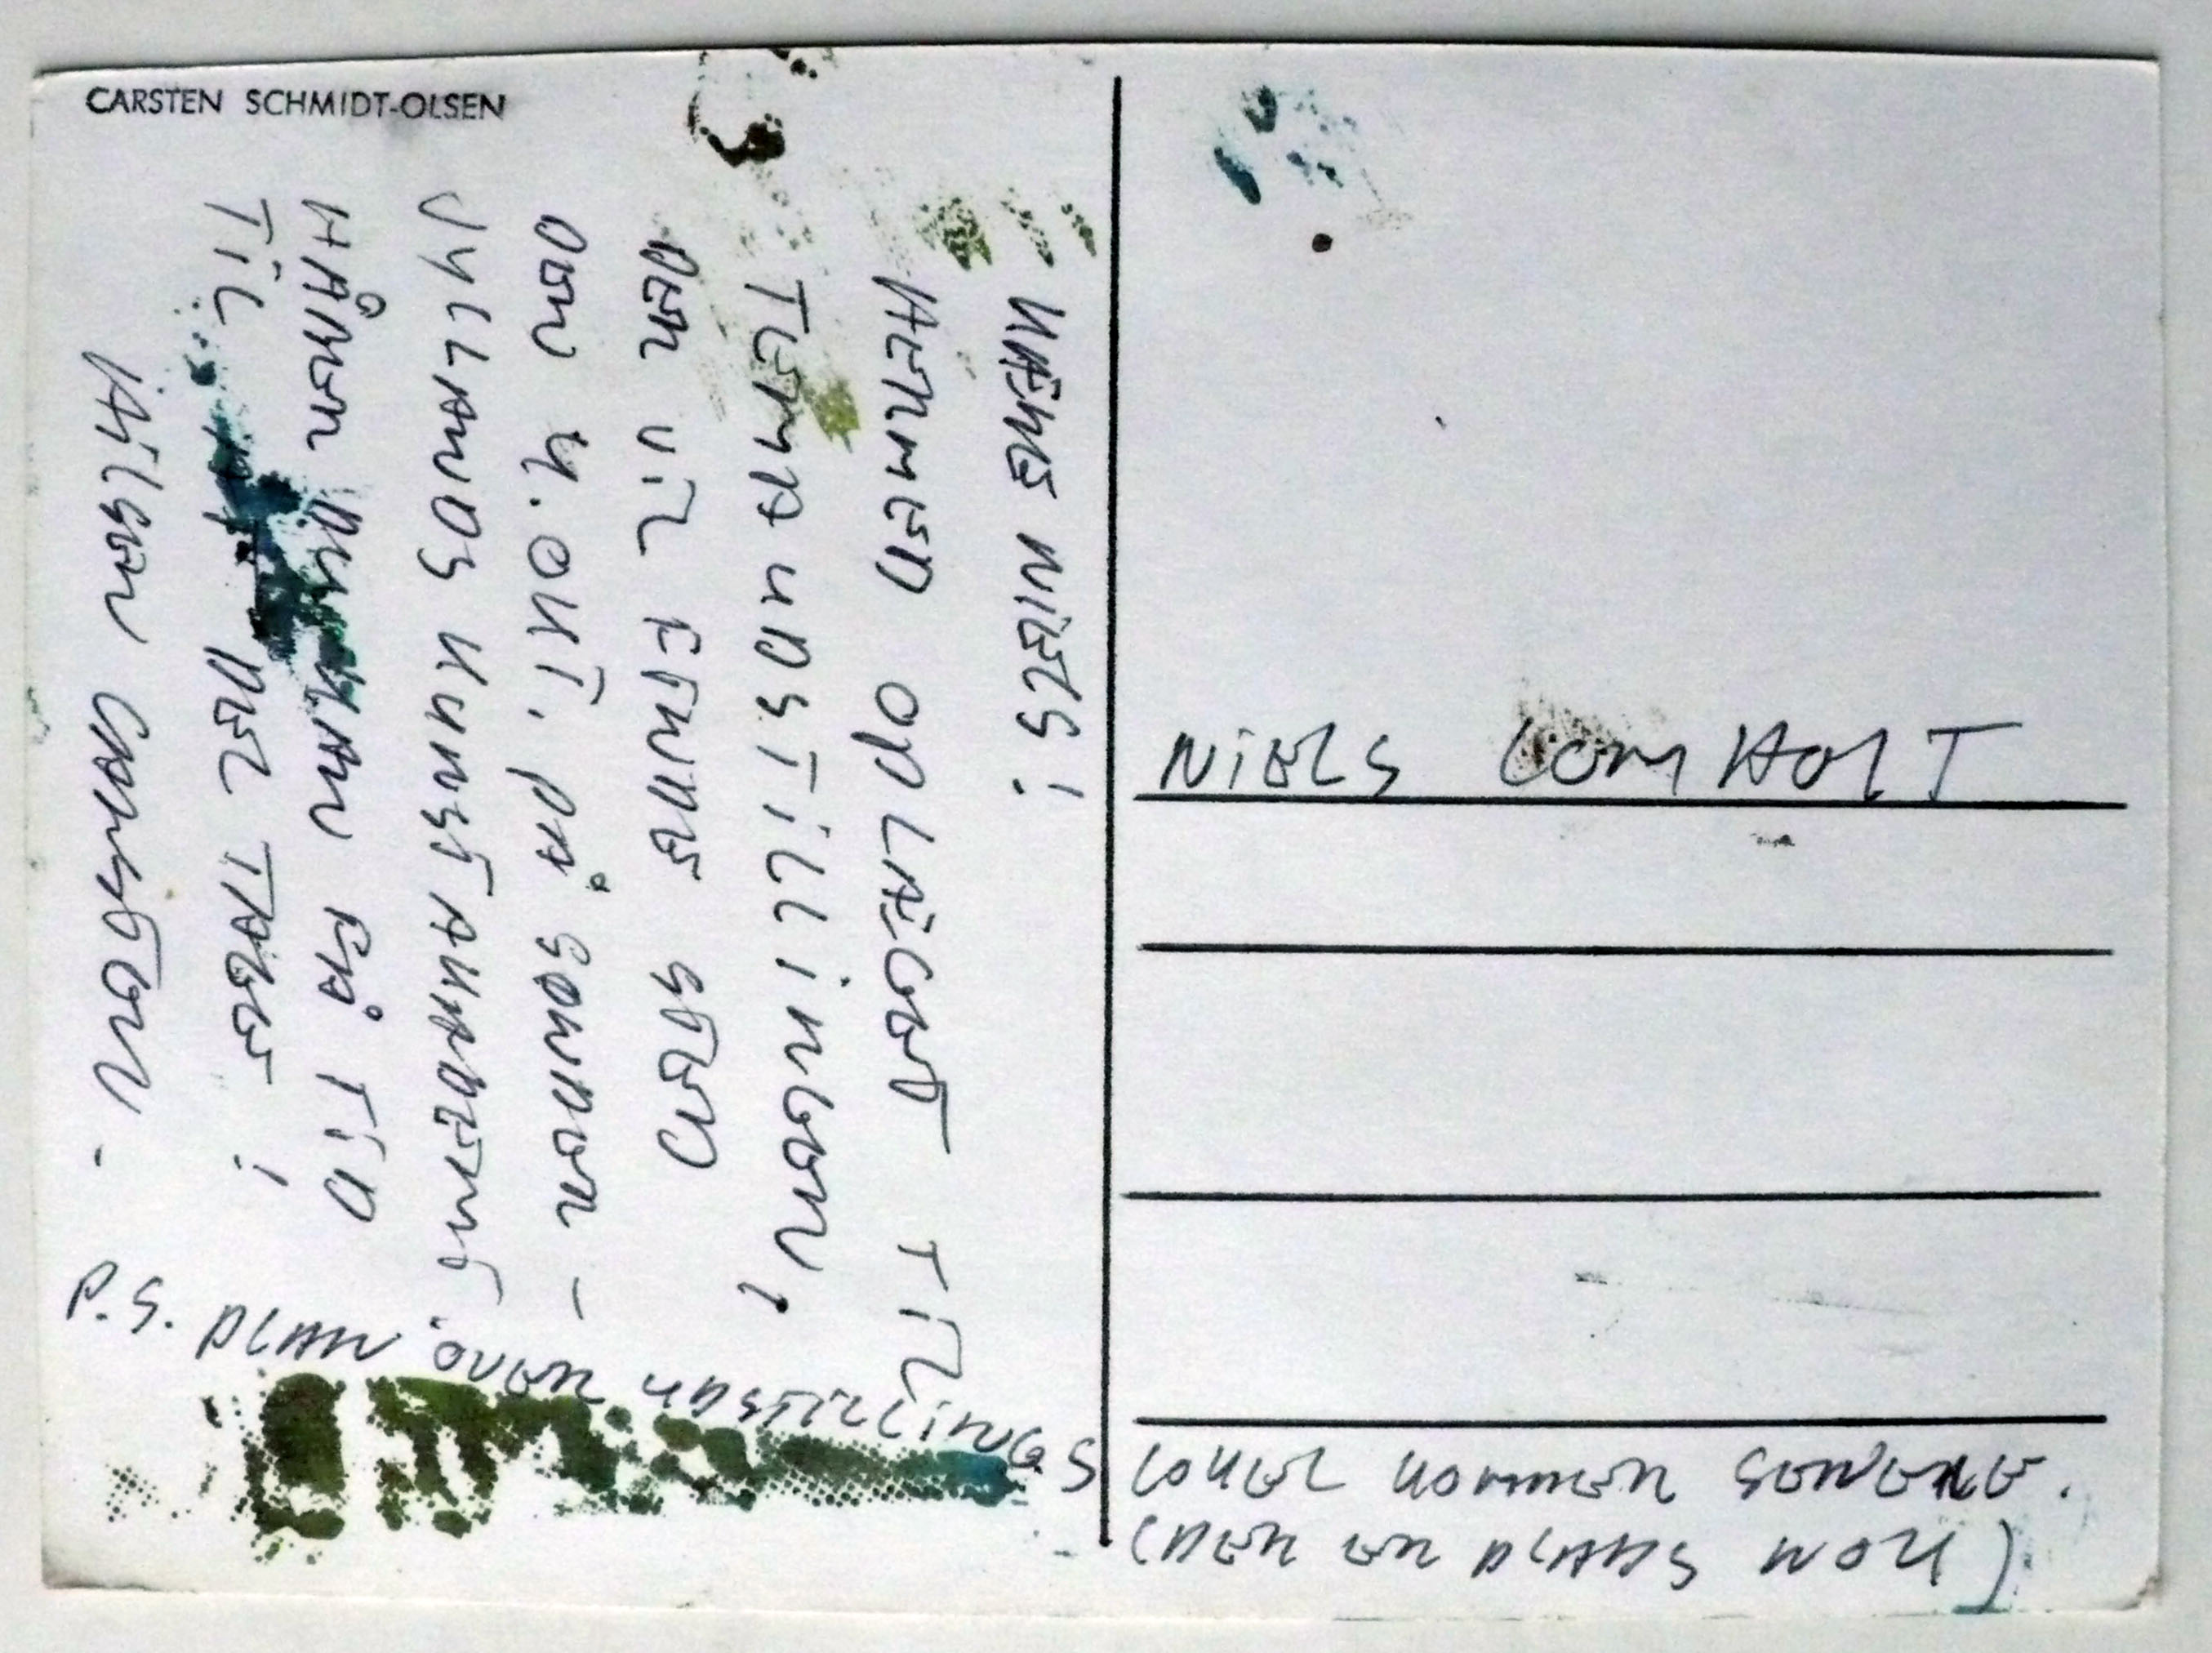 CARSTEN SCHMIDT-OLSEN
KÆRE NIELS!
HERMED OPLÆGET TIL
TEMAUDSTILLINGEN,
DER VIL FINDE STED
DEN 4. OKT. PÅ SØNDER-
JYLLANDS KUNSTAKADEMI.
HÅBER DU KAN FÅ TID
TIL DEL TAGE!
HILSEN CARSTEN.
P.S. PLAN OVER UDSTILLINGS
LOKAL KOMMER SENERE.
(DER ER PLADS NOK)
NIELS LOMHOLT